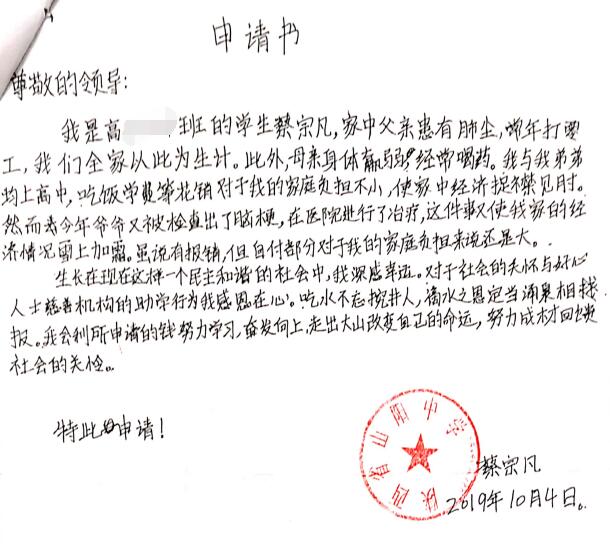 申请书
尊敬的领导:
我是高 班的学生蔡宗凡,家中父亲患有肺尘,常年打零
工,我们全家以此为生计。此外,母亲身体羸弱,经常喝药。我与我弟弟
均上高中,吃饭学费等花销对于我的家庭负担不小,使家中经济捉襟见肘。
然而去今年爷爷又被检查出了脑梗,在医院进行了治疗,这件事又使我家的经
济情况雪上加霜。虽说有报销,但自付部分对于我的家庭负担来说还是大。
生长在现在这样一个民主和谐的社会中,我深感幸运。对于社会的关怀与好心
人士慈善机构的助学行为我感恩在心。吃水不忘挖井人,滴水之恩定当涌泉相
报。我会利所申请的钱努力学习,奋发向上,走出大山改变自己的命运,努力成材回馈
社会的关怀。
特此申请!
陕西省山阳中学
蔡宗凡
2019年10月4日。